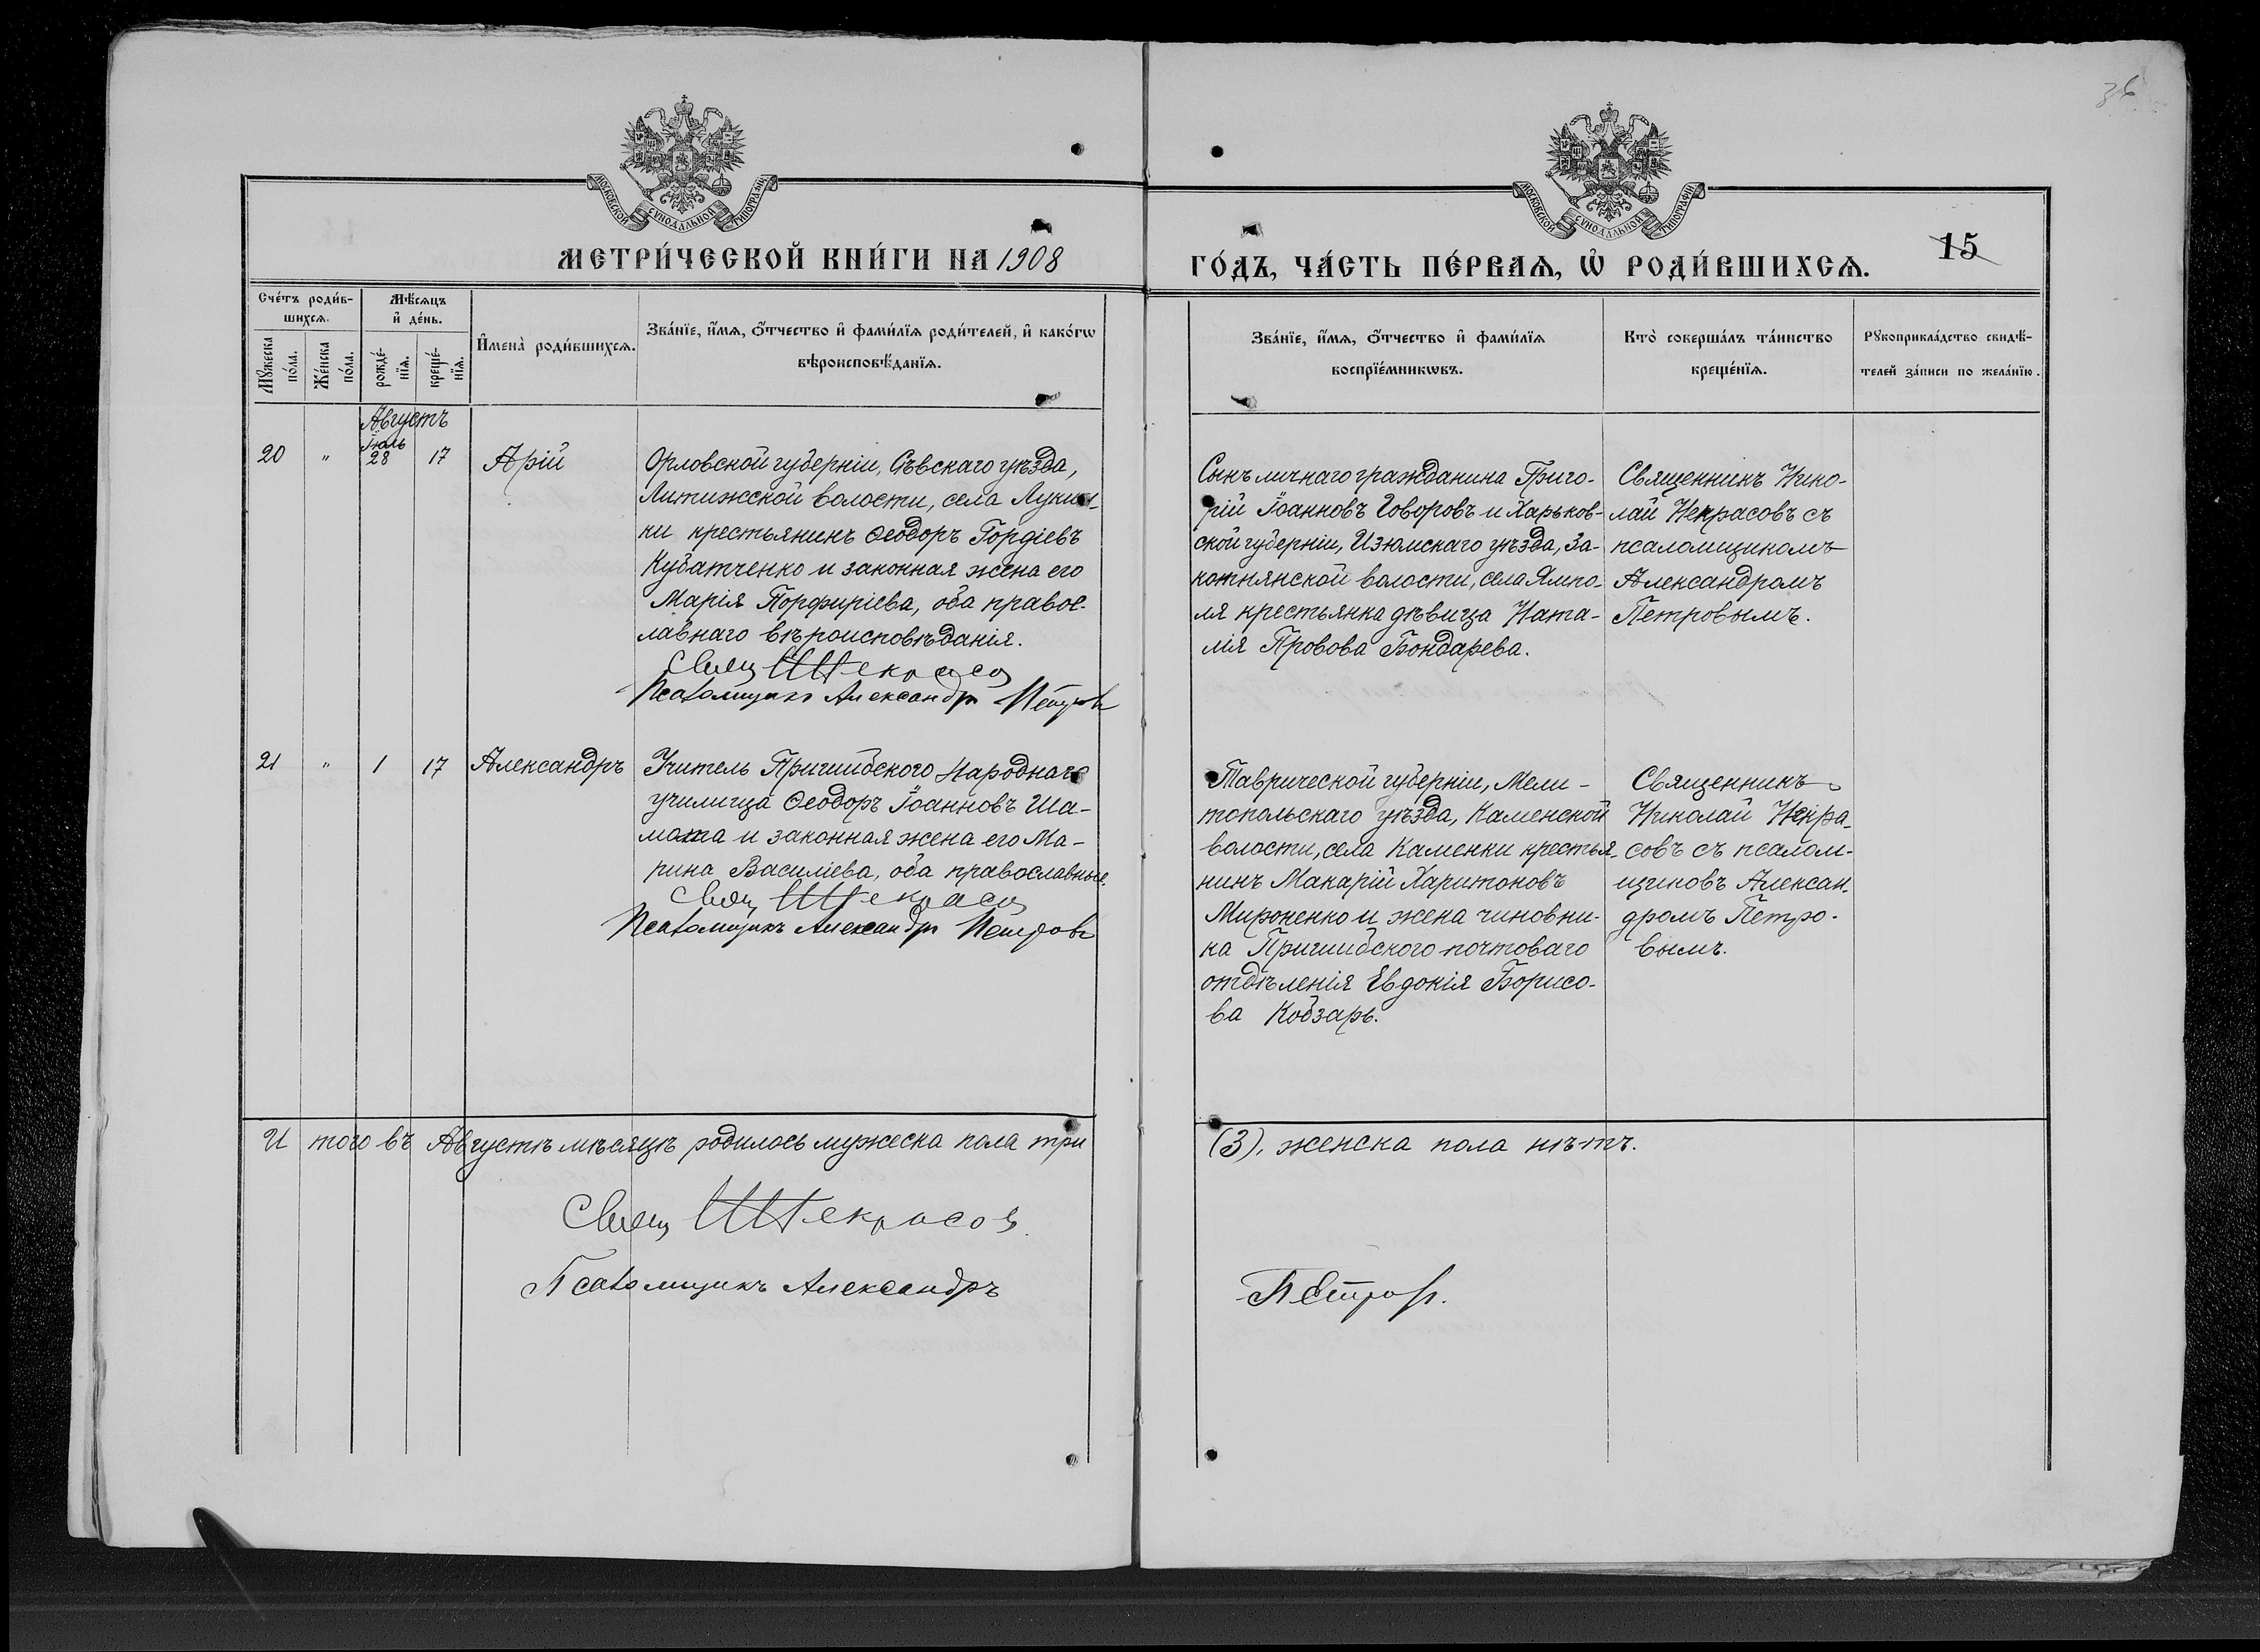 36
МОСКОВСКОЙ СѴНОДАЛЬНОЙ ТИПОГРАФІИ
МОСКОВСКОЙ СѴНОДАЛЬНОЙ ТИПОГРАФІИ
МЕТРИ́ЧЕСКОЙ КНИ́ГИ НА 1908
ГО́ДЪ, ЧА́СТЬ ПЕ́РВАѦ, Ѡ҆ РОДИ́ВШИХСѦ.
15
Сче́тъ роди́в-
шихсѧ.
Мꙋ́жеска
по́ла.
Же́нска
по́ла.
Мѣ́сѧцъ
и҆ де́нь.
рожде́-
нїѧ.
креще́-
нїѧ.
И҆мена̀ роди́вшихсѧ.
Зва́нїе, и҆́мѧ, ѻ҆́тчество и҆ фами́лїѧ роди́телей, и҆ како́гѡ
вѣроисповѣ́данїѧ.
Зва́нїе, и҆́мѧ, ѻ҆́тчество и҆ фами́лїѧ
воспрїе́мникѡвъ.
Кто̀ соверша́лъ та́инство
креще́нїѧ.
Рꙋкоприкла́дство свидѣ́-
телей за́писи по жела́нїю.
Августъ
Іюль
20 " 28 17 Арій
Орловской губерніи, Сѣвскаго уѣзда,
Литижской волости, села Лукин-
ки крестьянинъ Ѳеодоръ Гордіевъ
Кубатченко и законная жена его
Марія Порфиріева, оба правос-
лавнаго вѣроисповѣданія.
Свящ Н Некрасов
Псаломщикъ Александръ Петровъ
Сынъ личнаго гражданина Григо-
рій Іоанновъ Говоровъ и Харьков-
ской губерніи, Изюмскаго уѣзда, За-
котнянской волости, села Ямпо-
ля крестьянка дѣвица Ната-
лія Провова Бондарева.
Священникъ Нико-
лай Некрасовъ съ
псаломщикомъ
Александромъ
Петровымъ.
21 " 1 17 Александръ
Учитель Пришибского Народнаго
училища Ѳеодоръ Іоанновъ Ша-
мота и законная жена его Ма-
рина Василіева, оба православные.
Свящ Н Некрасов
Псаломщикъ Александръ Петровъ
Таврической губерніи, Мели-
топольскаго уѣзда, Каменской
волости, села Каменки крестья-
нинъ Макарій Харитоновъ
Мироненко и жена чиновни-
ка Пришибского почтоваго
отдѣленія Евдокія Борисо-
ва Кобзарь.
Священникъ
Николай Некра-
совъ съ псалом-
щиковъ Алексан-
дромъ Петро-
вымъ.
И того въ Августѣ мѣсяцѣ родилось мужеска пола три
(3), женска пола нѣтъ.
Свящ Н Некрасовъ.
Псаломщикъ Александръ
Петровъ.